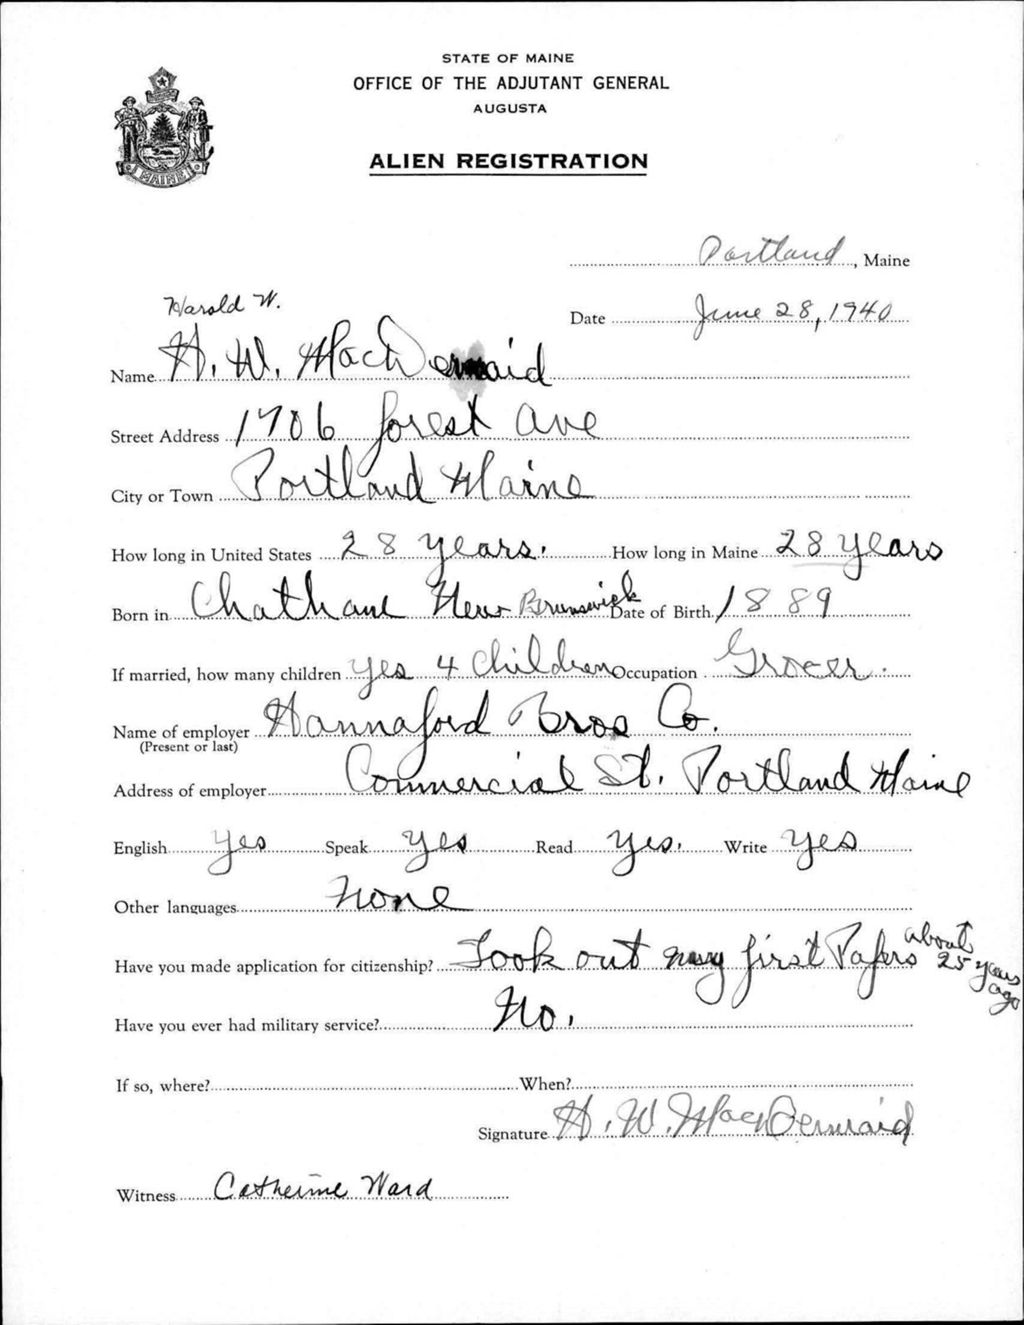 STATE OF MAINE
OFFICE OF THE ADJUTANT GENERAL
AUGUSTA
ALIEN REGISTRATION
MAINE
Portland, Maine
Date June 28, 1940
Harold W.
Name H. W. MacDermaid
Street Address 1706 forest Ave
City or Town Portland Maine
How long in United States 28 years. How long in Maine 28 years
Born in Chatham New Brunswick Date of Birth 1889
If married, how many children yes 4 Children Occupation Grocer.
Name of employer Hannaford Bros Co.
(Present or last)
Address of employer Commercial St. Portland Maine
English yes Speak yes Read yes. Write yes
Other languages None
Have you made application for citizenship? Took out my first Papers about 25 years ago
Have you ever had military service? No.
If so, where? When?
Signature H. W. MacDermaid
Witness Catherine Ward